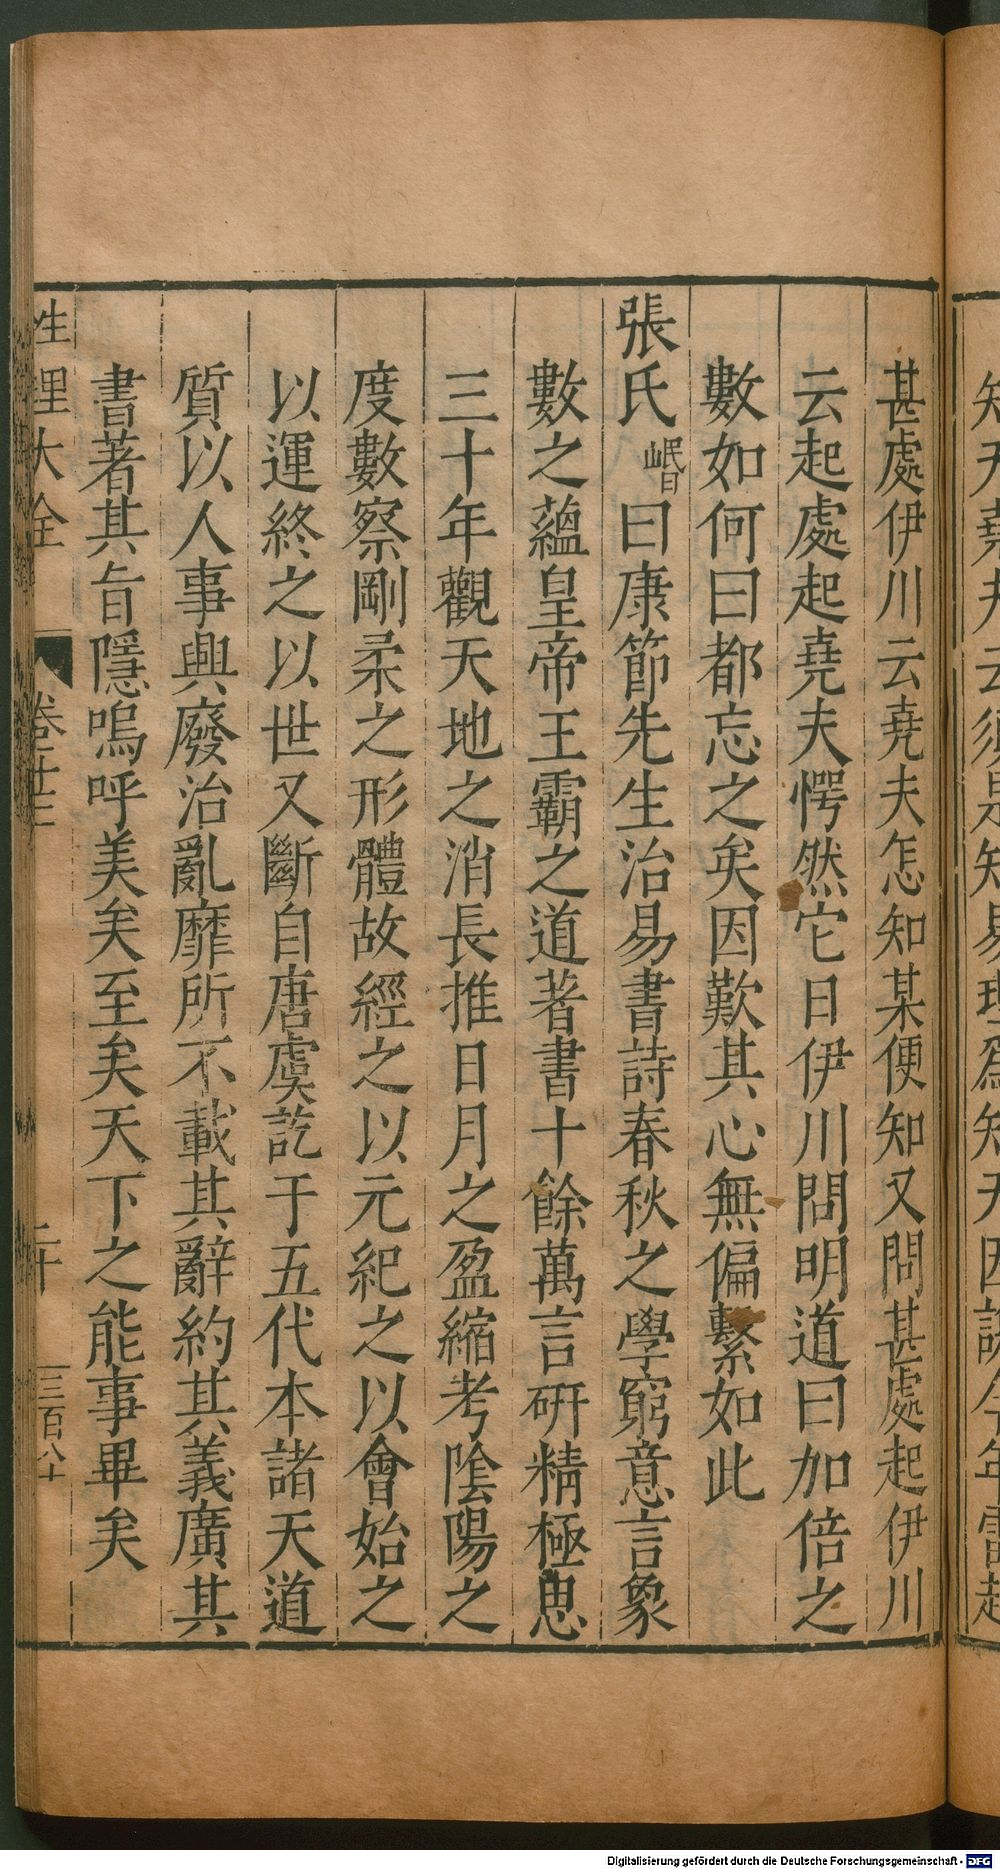 甚處伊川云堯夫怎知某便知又問甚處起伊川
云起處起堯夫愕然它日伊川問明道曰加倍之
數如何曰都忘之矣因歎其心無偏繫如此
張氏㟭曰康節先生治易書詩春秋之學窮意言象
數之蘊皇帝王霸之道著書十餘萬言硏精極思
三十年觀天地之消長推日月之盈縮考陰陽之
度數察剛柔之形體故經之以元紀之以會始之
以運終之以世又斷自唐虞訖于五代本諸天道
質以人事興廢治亂靡所不載其辭約其義廣其
書著其旨隱嗚呼美矣至矣天下之能事畢矣
性理大全
三百八十
Digitalisierung gefördert durch die Deutsche Forschungsgemeinschaft - DFG